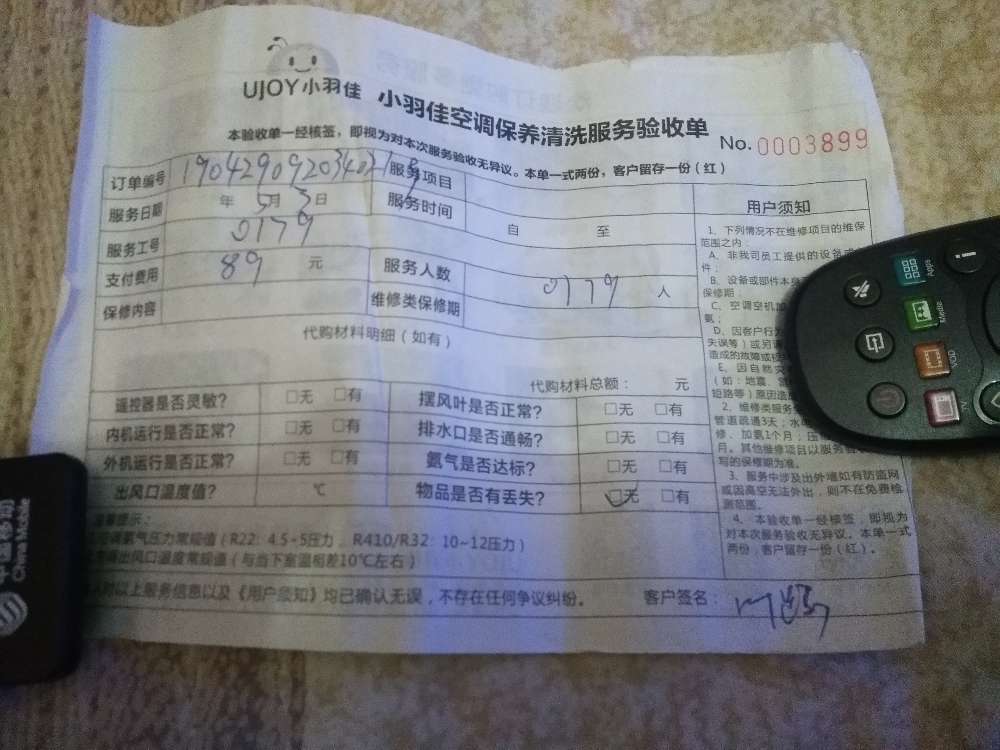 UJOY小羽佳
小羽佳空调保养清洗服务验收单
No. 0003899
本验收单一经核签，即视为对本次服务验收无异议。本单一式两份，客户留存一份（红）
订单编号
服务项目
服务日期 年 5月3日 服务时间 自 至
服务工号 0179
支付费用 89 元 服务人数 0179 人
保修内容 维修类保修期
代购材料明细（如有）
代购材料总额： 元
遥控器是否灵敏? □无 □有 摆风叶是否正常? □无 □有
内机运行是否正常? □无 □有 排水口是否通畅? □无 □有
外机运行是否正常? □无 □有 氨气是否达标? □无 □有
出风口温度值? ℃ 物品是否有丢失? □无 □有
提示：
氨气压力常规值（R22：4.5~5压力 、R410/R32：10~12压力）
出风口温度常规值（与当下室温相差10℃左右）
对以上服务信息以及《用户须知》均已确认无误，不存在任何争议纠纷。 客户签名：
用户须知
1、下列情况不在维修项目的维保
范围之内：
A、非我司员工提供的设备或
件；
B、设备或部件本身
保修期；
C、空调空机加
氨；
D、因客户行为
失误等）或另
造成的故障或
E、因自然灾
（如：地震、
短路等）原因造
2、维修类服务
管道疏通3天；水
修、加氨1个月；压
月。其他维修项目以服务
写的保修期为准。
3、服务中涉及出外墙如有防盗网
或因高空无法外出，则不在免费检
测范围。
4、本验收单一经核签，即视为
对本次服务验收无异议。本单一式
两份，客户留存一份（红）。
Apps
Media
VOD
TV
中国移动
China Mobile